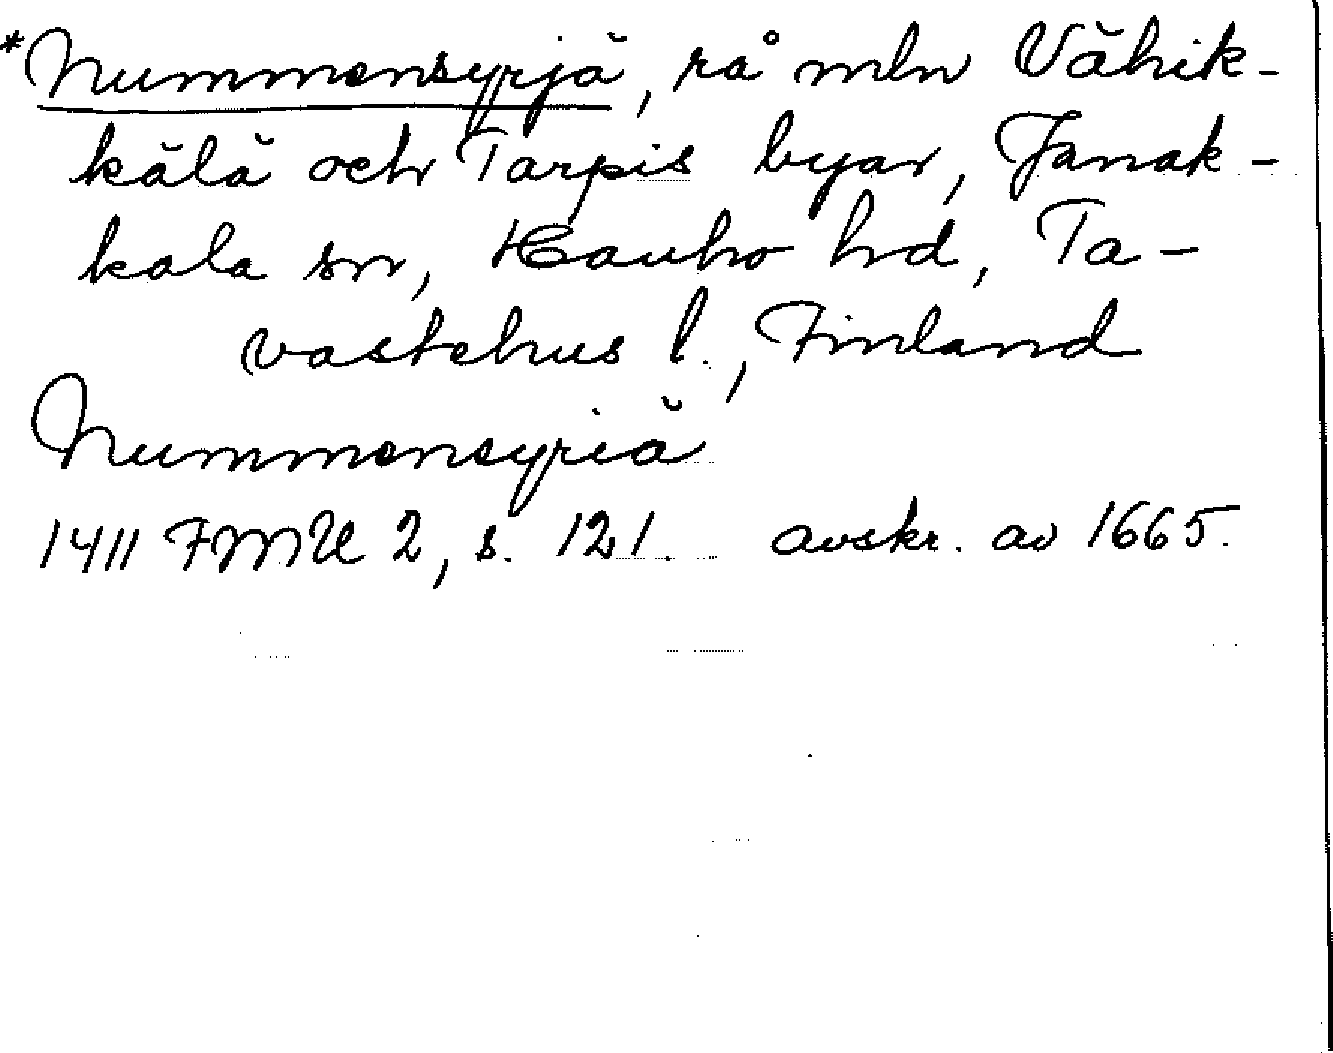 *Nummensyrjä, rå mln Vähik-
kälä och Tarpis byar, Janak-
kala sn, Hauho hd, Ta-
vastehus l., Finland
Nummensyriä
1411 FMU 2, s. 121. avskr. av 1665.